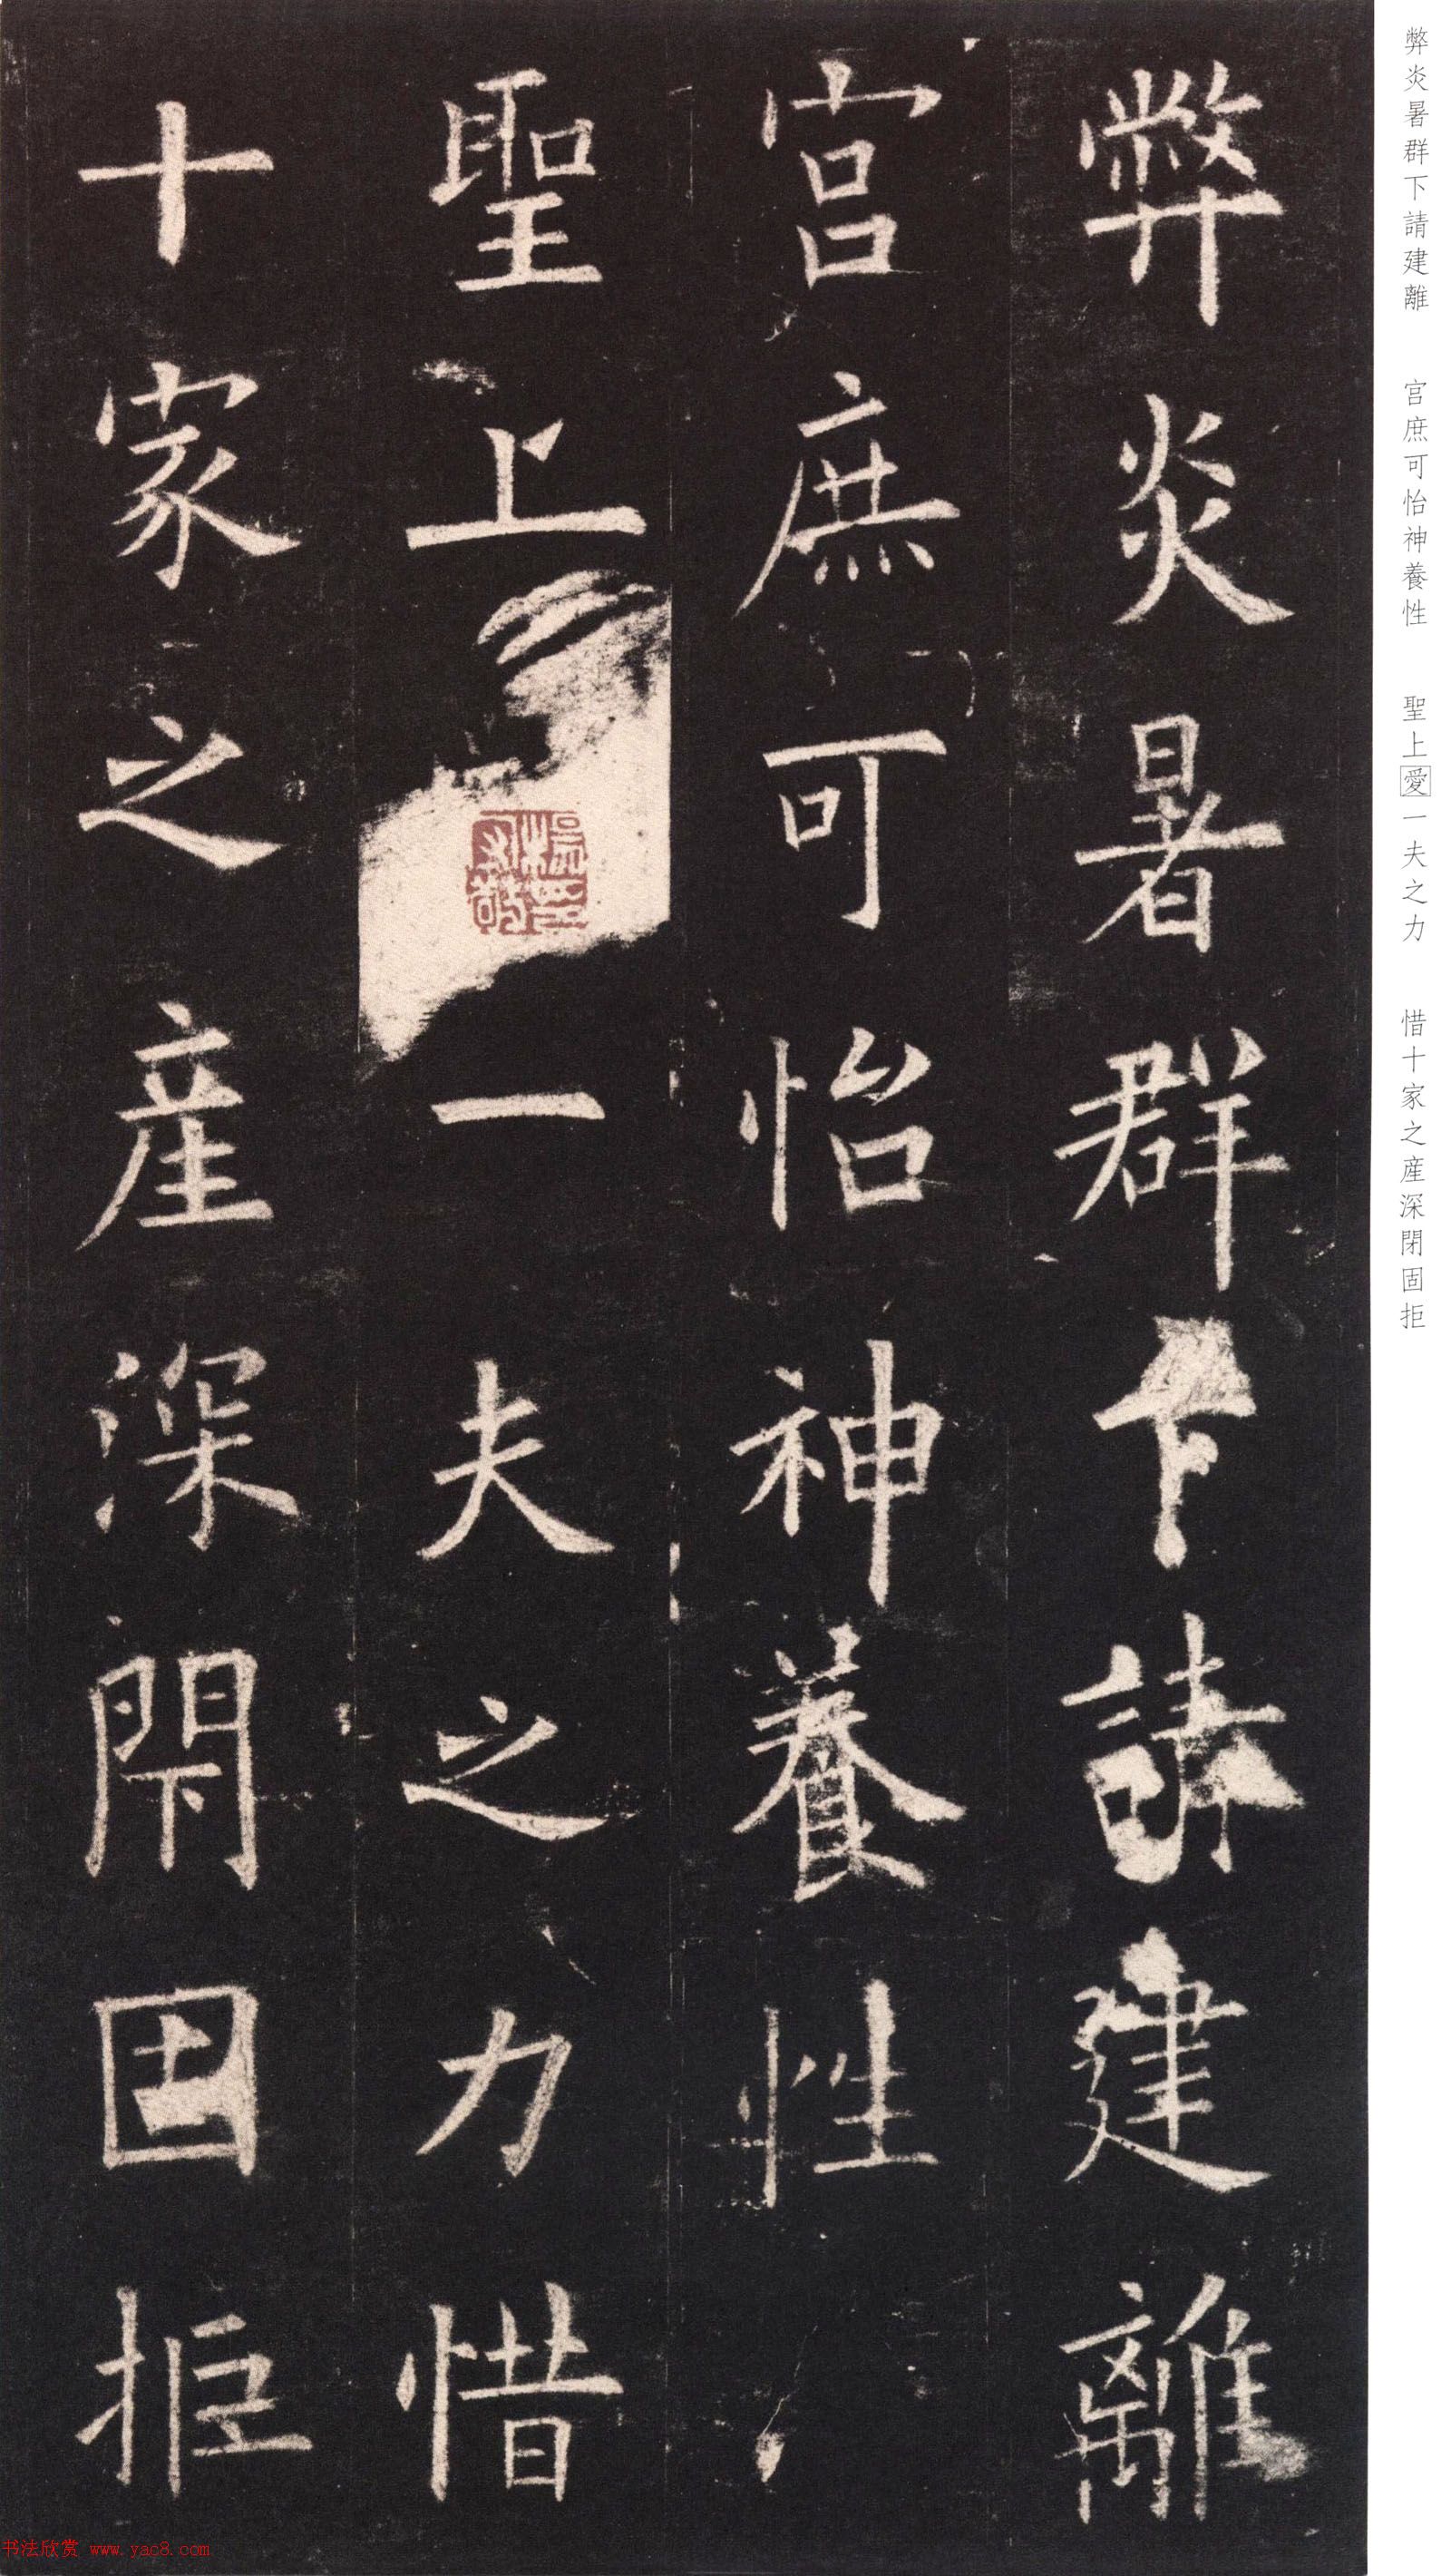 弊炎暑群下請建離　宮庶可怡神養性　聖上愛一夫之力　惜十家之産深閉固拒
弊炎暑群下請建離
宮庶可怡神養性
聖上一夫之力惜
十家之産深閇固拒
书法欣赏 www.yac8.com